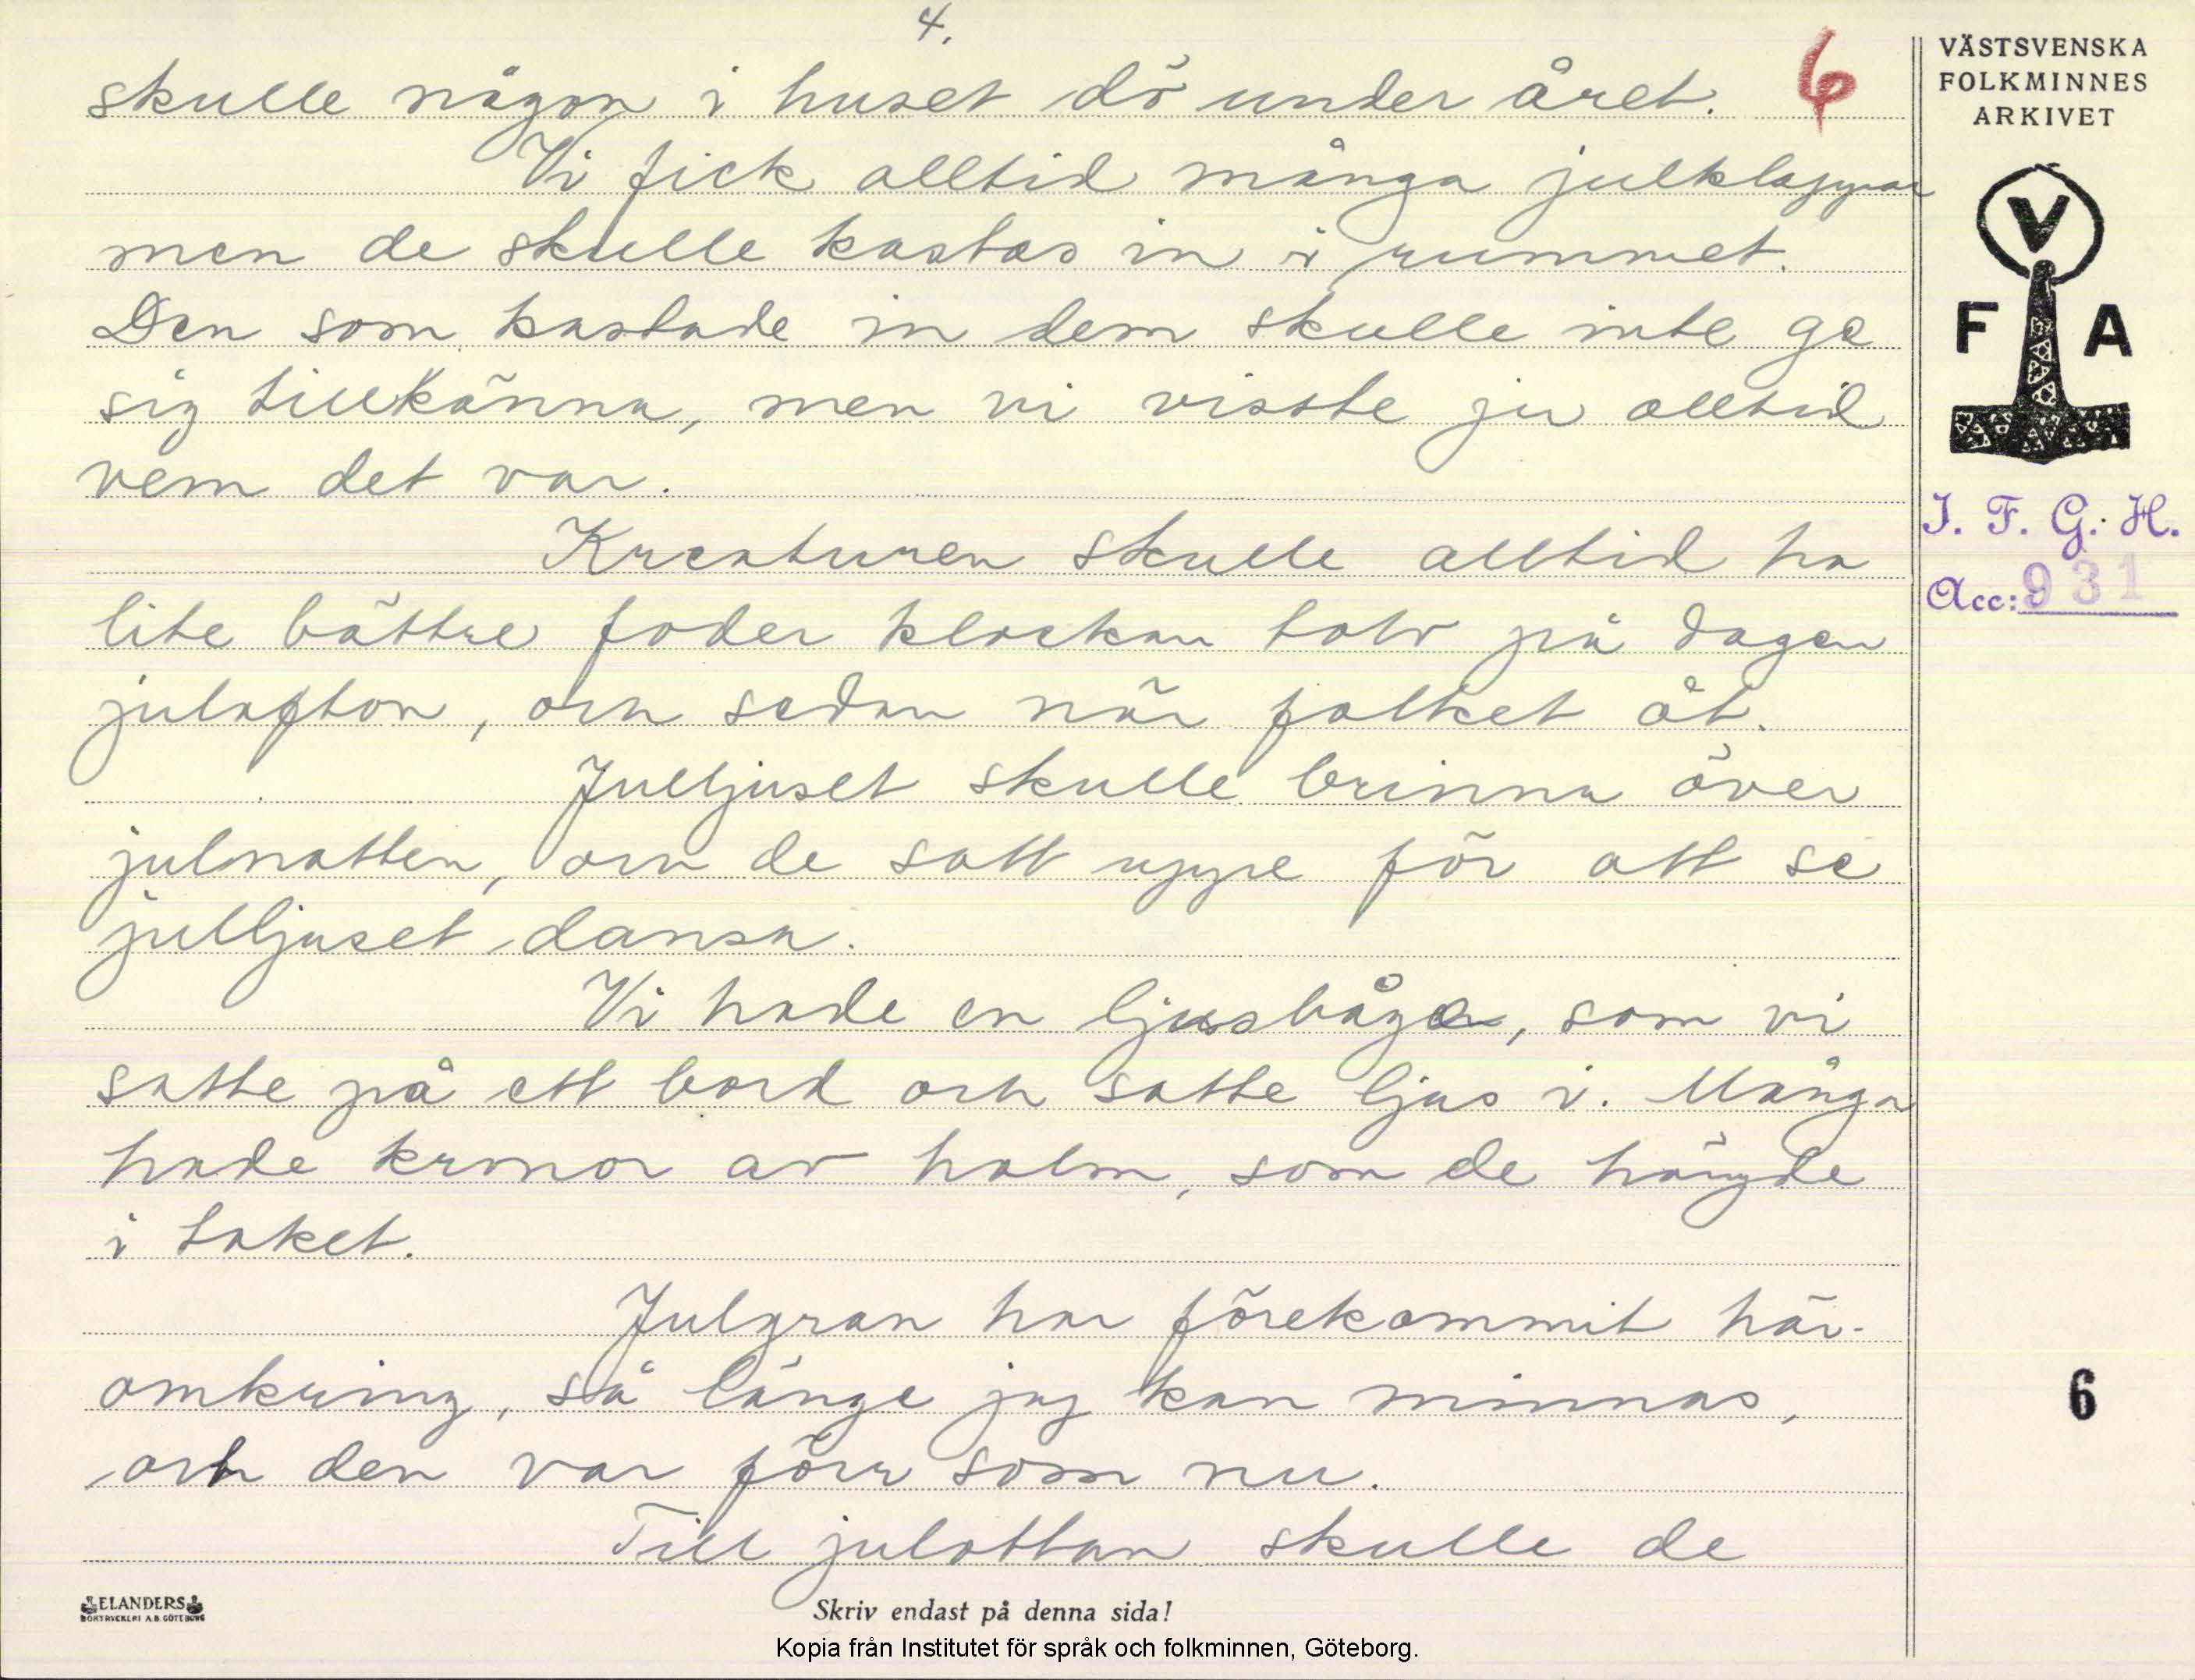 4.
6
skulle någon i huset dö under året.
Vi fick alltid många julklappar
men de skulle kastas in i rummet.
Den som kastade in dem skulle inte ge
sig tillkänna, men vi visste ju alltid
vem det var.
Kreaturen skulle alltid ha
lite bättre foder klockan tolv på dagen
julafton, och sedan när folket åt.
Julljuset skulle brinna över
julnatten, och de satt uppe för att se
julljuset dansa.
Vi hade en ljusbåge, som vi
satte på ett bord och satte ljus i. Många
hade kronor av halm, som de hängde
i taket.
Julgran har förekommit här-
omkring, så länge jag kan minnas,
och den var förr som nu.
Till julottan skulle de
VÄSTSVENSKA
FOLKMINNES
ARKIVET
V
F A
I. F. G. H.
Acc: 931
6
ELANDERS
BOKTRYCKERI A.B. GÖTEBORG
Skriv endast på denna sida!
Kopia från Institutet för språk och folkminnen, Göteborg.